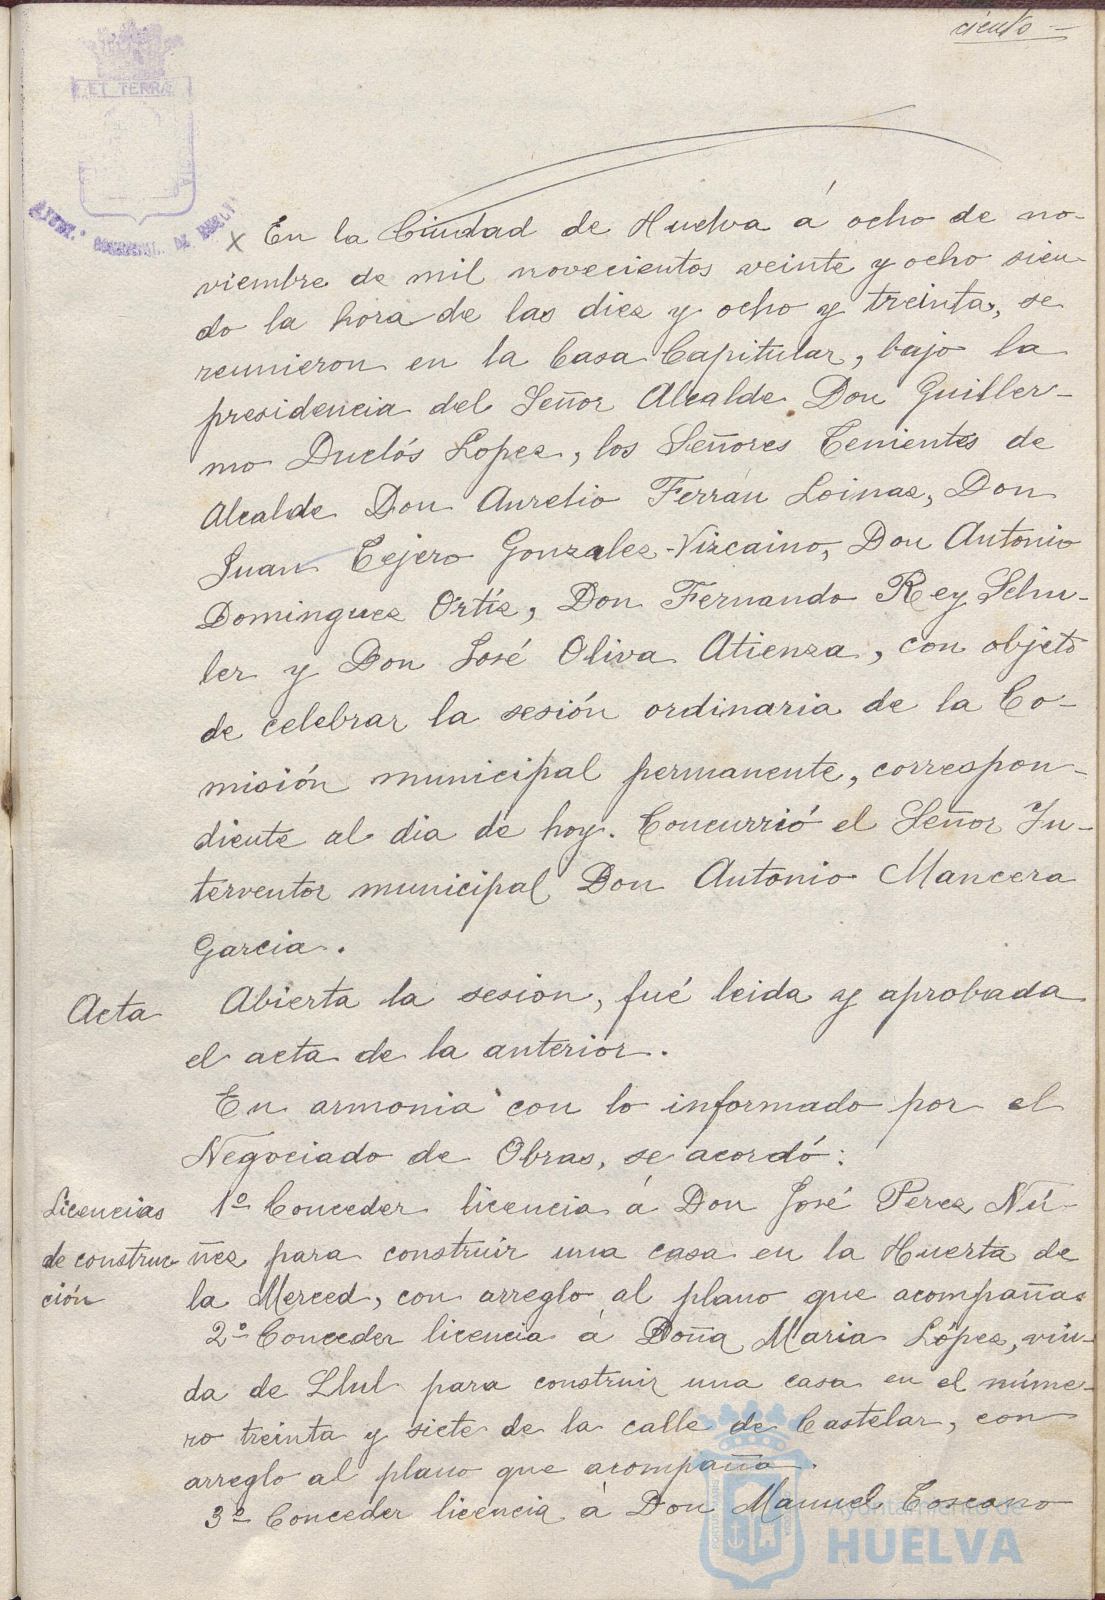 ciento
ET TERRÆ
En la Ciudad de Huelva á ocho de no-
viembre de mil novecientos veinte y ocho sien-
do la hora de las diez y ocho y treinta, se
reunieron en la Casa Capitular, bajo la
presidencia del Señor Alcalde Don Guiller-
mo Duclós Lopez, los Señores Tenientes de
Alcalde Don Aurelio Ferrán Loinaz, Don
Juan Tejero Gonzalez-Vizcaino, Don Antonio
Dominguez Ortíz, Don Fernando Rey Schu-
ler y Don José Oliva Atienza, con objeto
de celebrar la sesión ordinaria de la Co-
misión municipal permanente, correspon-
diente al dia de hoy. Concurrió el Señor In-
terventor municipal Don Antonio Mancera
Garcia.
Acta Abierta la sesion, fué leida y aprobada
el acta de la anterior.
En armonia con lo informado por el
Negociado de Obras, se acordó:
Licencias 1º Conceder licencia á Don José Perez Nú-
de construc ñez para construir una casa en la Huerta de
ción la Merced, con arreglo al plano que acompañas
2º Conceder licencia á Doña Maria López, viu-
da de Llul para construir una casa en el núme-
ro treinta y siete de la calle de Castelar, con
arreglo al plano que acompaña.
3º Conceder licencia á Don Manuel Toscano
Ayuntamiento de
HUELVA